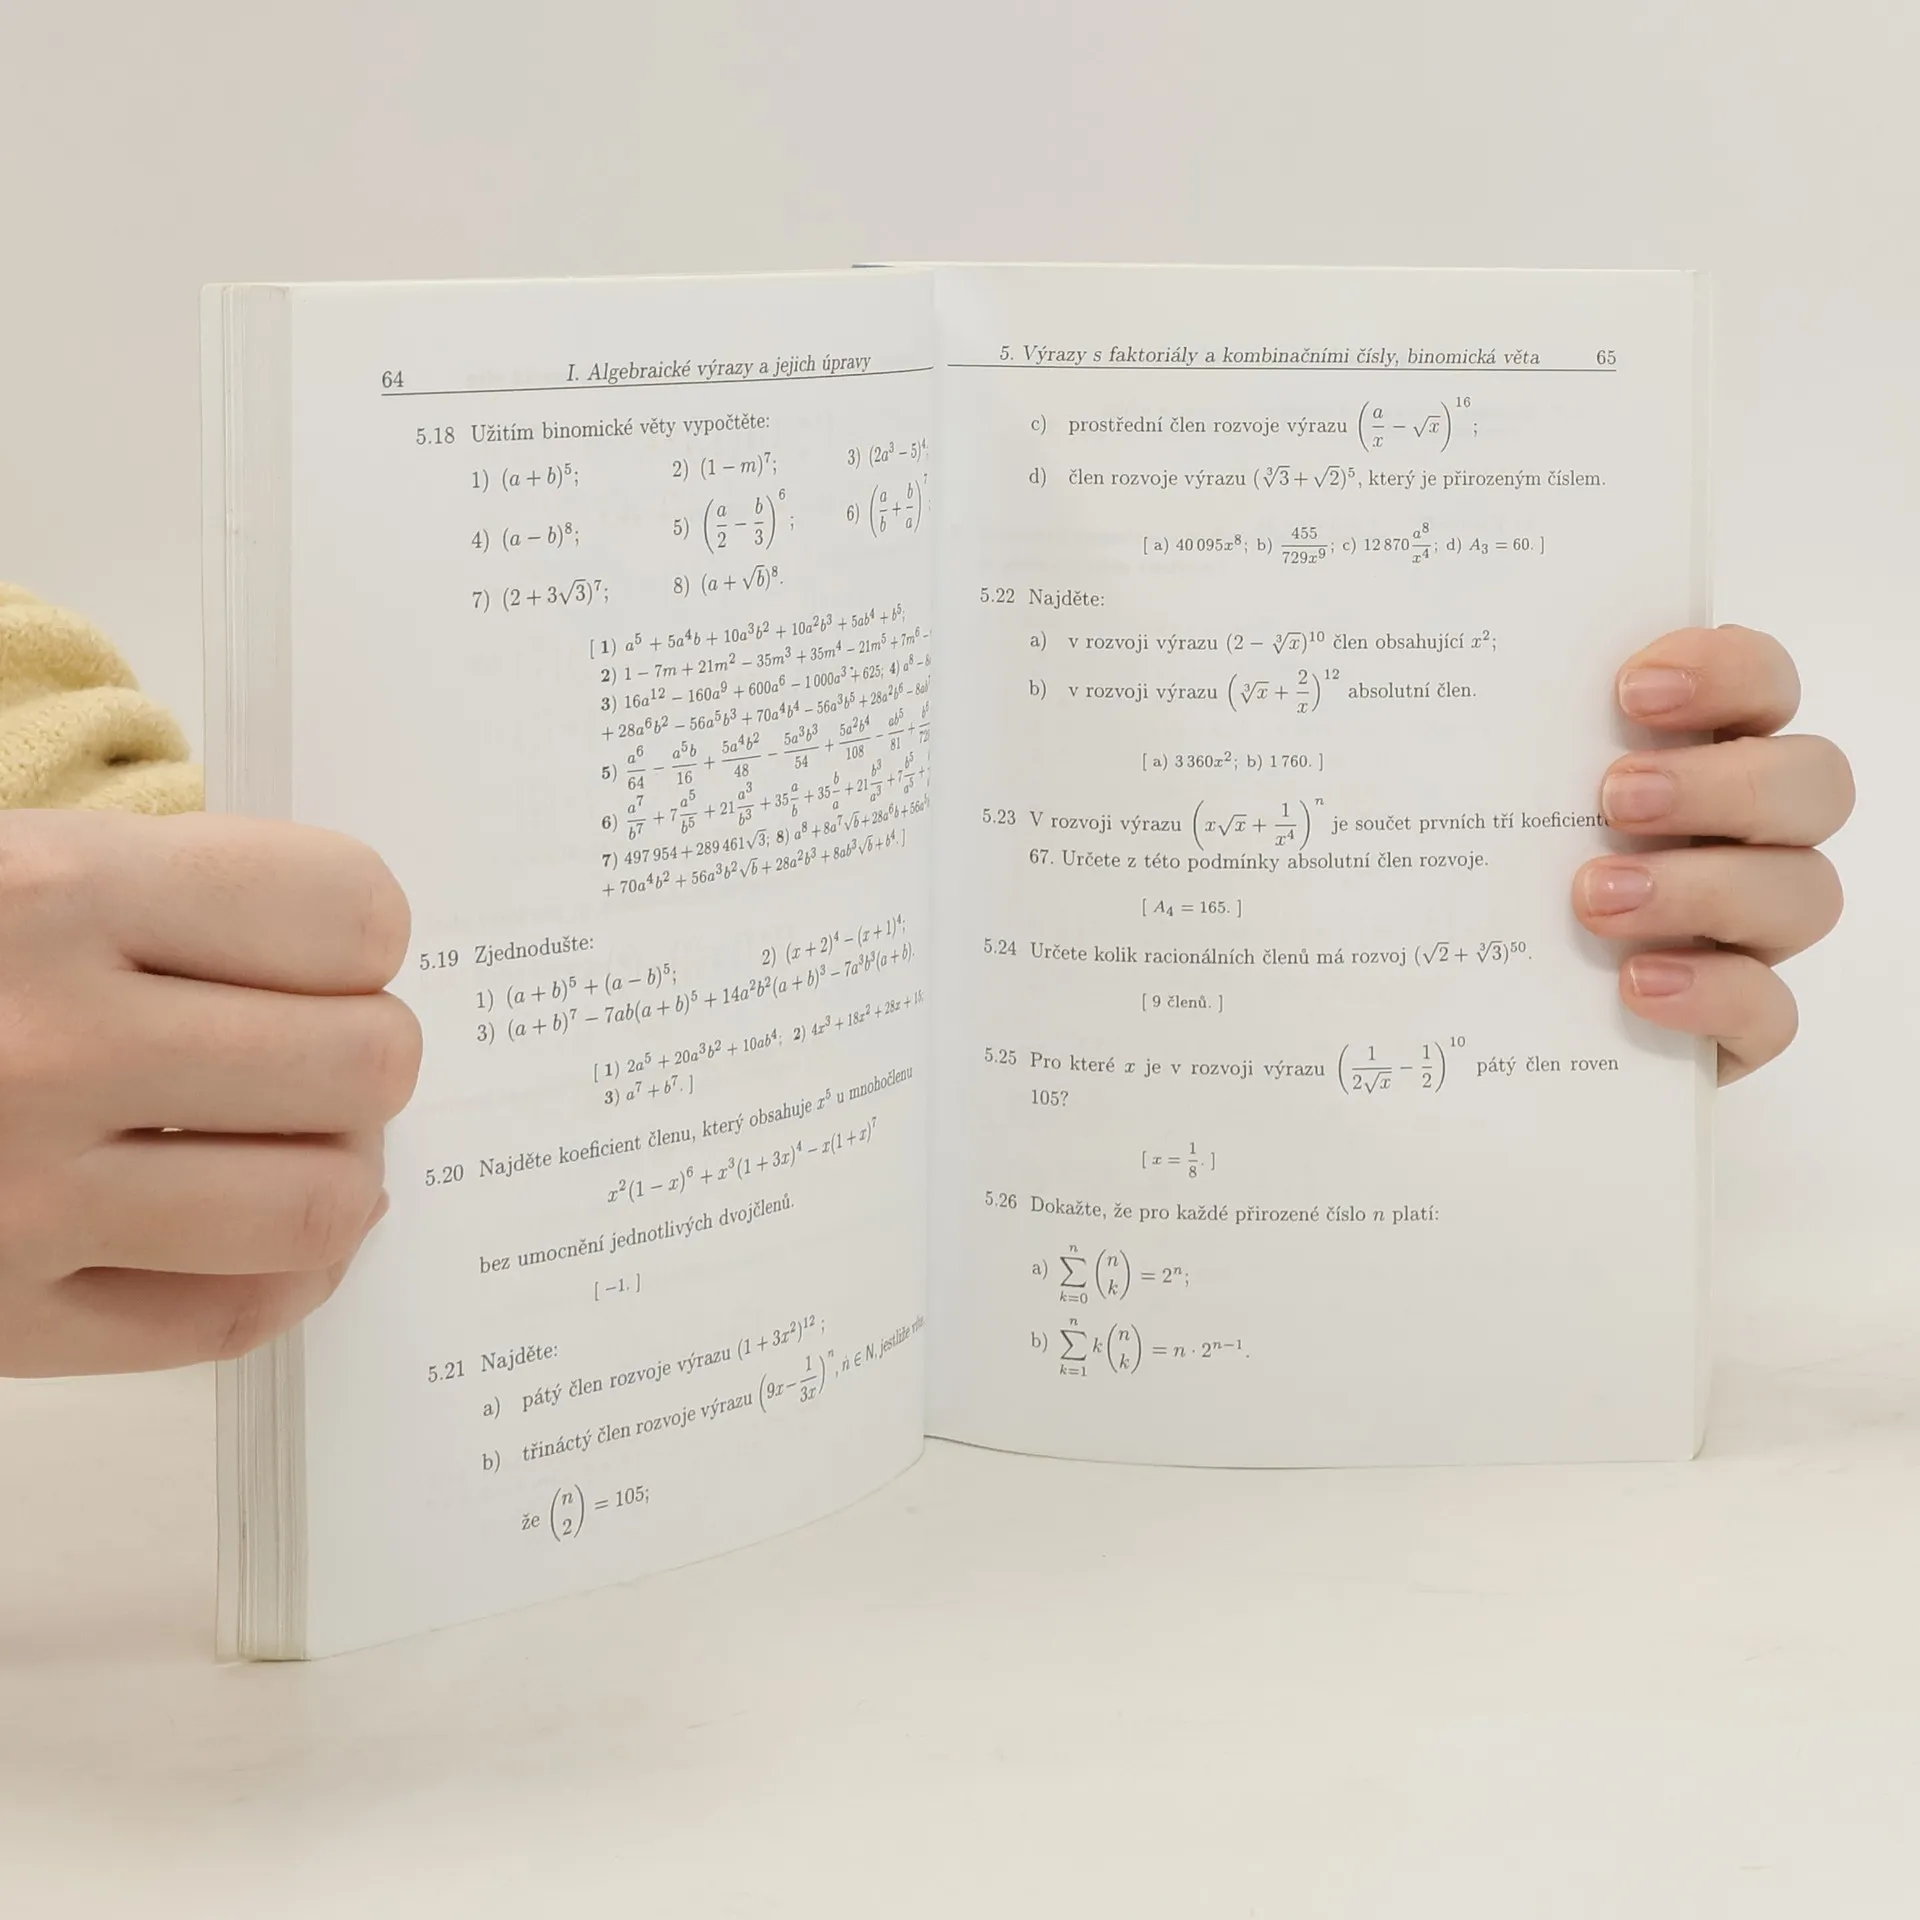 64 I. Algebraické výrazy a jejich úpravy
5.18 Užitím binomické věty vypočtěte:
1) (a + b)⁵; 2) (1 − m)⁷; 3) (2a³ − 5)⁴;
4) (a − b)⁸; 5) (a/2 − b/3)⁶; 6) (a/b + b/a)⁷;
7) (2 + 3√3)⁷; 8) (a + √b)⁸.
[ 1) a⁵ + 5a⁴b + 10a³b² + 10a²b³ + 5ab⁴ + b⁵;
2) 1 − 7m + 21m² − 35m³ + 35m⁴ − 21m⁵ + 7m⁶ −
3) 16a¹² − 160a⁹ + 600a⁶ − 1 000a³ + 625; 4) a⁸ −
+ 28a⁶b² − 56a⁵b³ + 70a⁴b⁴ − 56a³b⁵ + 28a²b⁶ − 8ab⁷
5) a⁶/64 − a⁵b/16 + 5a⁴b²/48 − 5a³b³/54 + 5a²b⁴/108 − ab⁵/81 +
6) a⁷/b⁷ + 7a⁵/b⁵ + 21a³/b³ + 35a/b + 35b/a + 21b³/a³ + 7b⁵/a⁵ +
7) 497 954 + 289 461√3; 8) a⁸ + 8a⁷√b + 28a⁶b + 56a⁵
+ 70a⁴b² + 56a³b²√b + 28a²b³ + 8ab³√b + b⁴. ]
5.19 Zjednodušte:
1) (a + b)⁵ + (a − b)⁵; 2) (x + 2)⁴ − (x + 1)⁴;
3) (a + b)⁷ − 7ab(a + b)⁵ + 14a²b²(a + b)³ − 7a³b³(a + b).
[ 1) 2a⁵ + 20a³b² + 10ab⁴; 2) 4x³ + 18x² + 28x + 15;
3) a⁷ + b⁷. ]
5.20 Najděte koeficient členu, který obsahuje x⁵ u mnohočlenu
x²(1 − x)⁶ + x³(1 + 3x)⁴ − x(1 + x)⁷
bez umocnění jednotlivých dvojčlenů.
[ −1. ]
5.21 Najděte:
a) pátý člen rozvoje výrazu (1 + 3x²)¹²;
b) třináctý člen rozvoje výrazu (9x − 1/3x)ⁿ, n ∈ N, jestliže
že (n 2) = 105;
5. Výrazy s faktoriály a kombinačními čísly, binomická věta 65
c) prostřední člen rozvoje výrazu (a/x − √x)¹⁶;
d) člen rozvoje výrazu (∛3 + √2)⁵, který je přirozeným číslem.
[ a) 40 095x⁸; b) 455/729x⁹; c) 12 870 a⁸/x⁴; d) A₃ = 60. ]
5.22 Najděte:
a) v rozvoji výrazu (2 − ∛x)¹⁰ člen obsahující x²;
b) v rozvoji výrazu (∛x + 2/x)¹² absolutní člen.
[ a) 3 360x²; b) 1 760. ]
5.23 V rozvoji výrazu (x√x + 1/x⁴)ⁿ je součet prvních tří
67. Určete z této podmínky absolutní člen rozvoje.
[ A₄ = 165. ]
5.24 Určete kolik racionálních členů má rozvoj (√2 + ∛3)⁵⁰.
[ 9 členů. ]
5.25 Pro které x je v rozvoji výrazu (1/2√x − 1/2)¹⁰ pátý člen roven
105?
[ x = 1/8. ]
5.26 Dokažte, že pro každé přirozené číslo n platí:
a) ∑ₖ₌₀ⁿ (n k) = 2ⁿ;
b) ∑ₖ₌₁ⁿ k(n k) = n · 2ⁿ⁻¹.